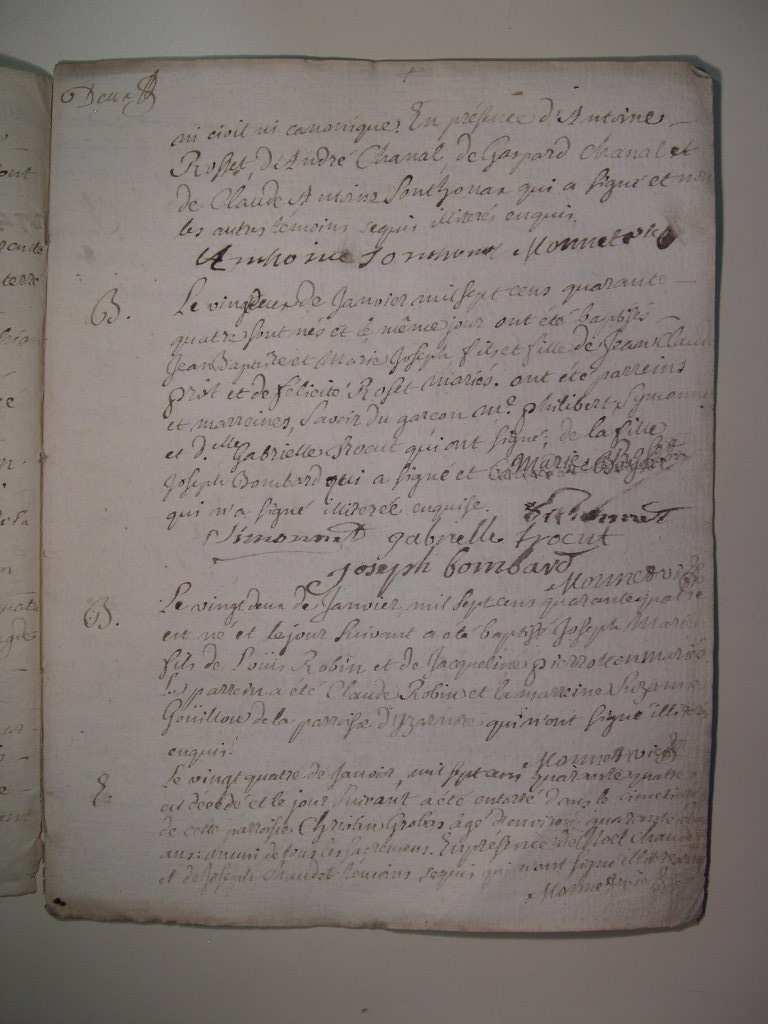 Deux
ni civil ni canonique. En présence d'Antoine
Rosset, d'André Chanal, de Gaspard Chanal et
de Claude Antoine Sonthonax qui a signé et non
les autres témoins requis illiterés enquis.
Anthoine Sonthonax Monnet vic
B. Le vingt deux de Janvier mil sept cens quarante
quatre sont nés et le même jour ont été baptisés
Jean Baptiste et Marie Joseph fils et fille de Jean Claude
Prost et de felicité Roset mariés. ont été parreins
et marreines, Savoir du garçon mr. philibert Symonnet
et d.lle Gabrielle Trocut qui ont signé, de la fille
Joseph Bombard qui a signé et Marie
qui n'a signé illiterée enquise.
Simonnet gabrielle trocut
joseph bombard
Monnet vic
B. Le vingt deux de Janvier mil sept cens quarante quatre
est né et le jour suivant a été baptisé Joseph Marie
fils de Loüis Robin et de Jacqueline pierrotten mariés
Le parrein a été Claude Robin et la marreine Suzanne
Goüillon de la parroisse d'yzarnore qui n'ont signé illiterés
enquis.
Monnet vic
E. Le vingt quatre de Janvier mil sept cens quarante quatre
est décédé et le jour suivant a été enterré dans le cimetière
de cette parroisse, âgé d'environ quarante
ans, muni de tous les sacremens. En présence de
et de Joseph témoins requis qui n'ont signé illiterés enquis
Monnet vic